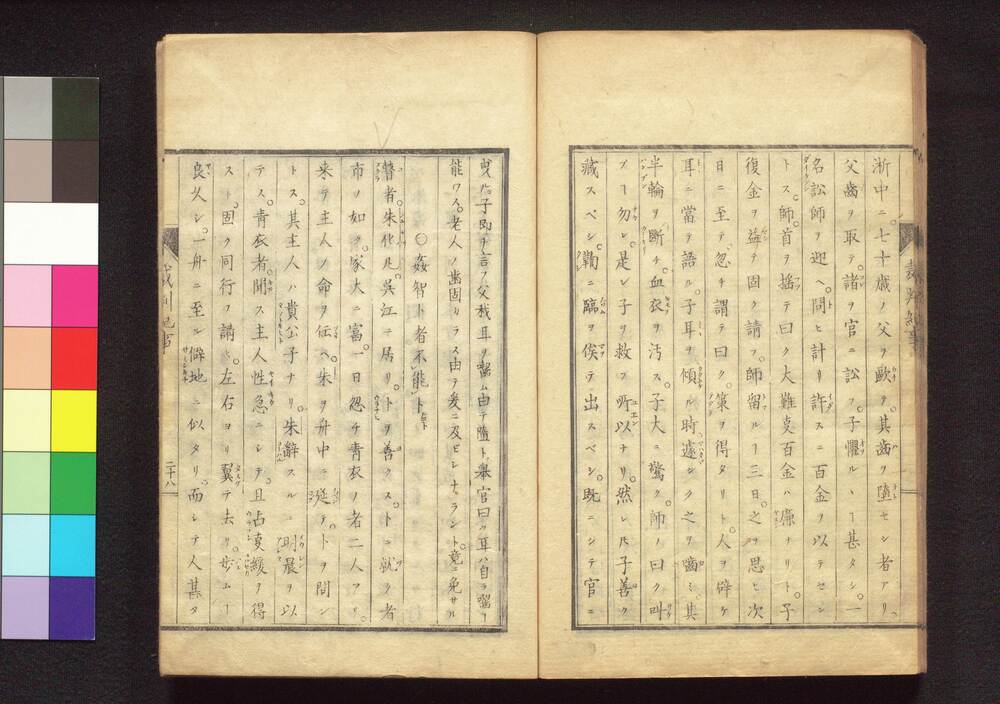 淅中ニ。七十歳ノ父ヲ歐テ。其齒ヲ墮セシ者アリ
父齒ヲ取テ。諸ヲ官ニ訟フ。子懼ルヽ┐甚タシ。一
名訟師ヲ迎ヘ。問ヒ計リ許スニ百金ヲ以テセン
トス。師首ヲ揺テ曰ク大難㕝百金ハ廉ナリト。子
復金ヲ益テ固ク請フ。師留ルヿ三日。之ヲ思ヒ次
日ニ至テ。忽チ謂テ曰ク。策ヲ得タリト。人ヲ辟ケ
耳ニ當テ語ル。子耳ヲ傾ル時遽シク之ヲ嚙ミ。其
半輪ヲ断チ。血衣ヲ汚ス。子大ニ驚ク。師ノ曰ク叫
ブヿ勿レ。是レ子ヲ救フ所以ナリ。然レ𪜈子善ク
藏スベシ。鞫ニ臨ヲ俟テ出スベシ。既ニシテ官ニ
叓ル子即チ言フ父我耳ヲ嚙ム由テ墮ト。舉官曰ク耳ハ自ラ嚙ヿ
能ワス。老人ノ齒固カラス由テ爰ニ及ビシナラント。竟ニ免サル
〇姦智ト者不能ト
瞽者。朱化ル。呉江ニ居リ。トヲ善クス。トニ就ク者
市ノ如ク。家大ニ富。一日忽チ青衣ノ者二人アリ。
来テ主人ノ命ヲ伝ヘ。朱ヲ舟中ニ延テ。トヲ問ン
トス。其主人ハ貴公子ナリ。朱辭スルニ明晨ヲ以
テス。青衣者。聞ス主人性急ニシテ。且占㕝緩ヲ得
スト。固ク同行ヲ請ヒ。左右ヨリ翼テ去リ。歩ムヿ
良久シ。一舟ニ至ル僻地ニ似タリ。而シテ人甚タ
二十八